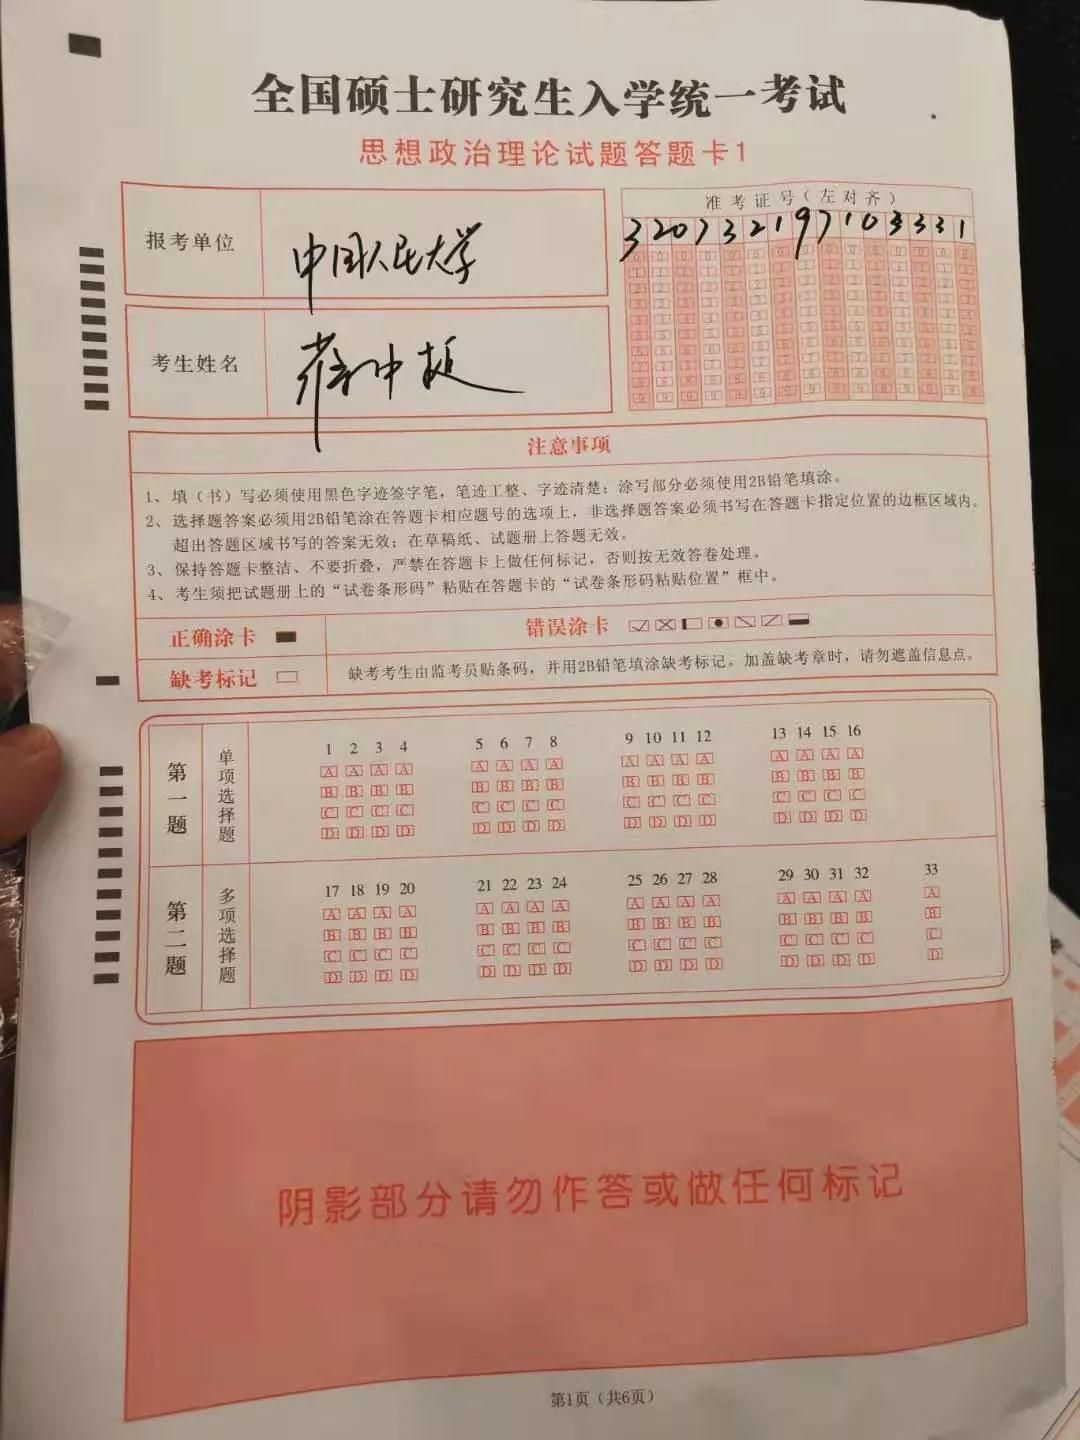 全国硕士研究生入学统一考试
思想政治理论试题答题卡1
报考单位
中国人民大学
准考证号(左对齐)
320732197103331
考生姓名
注意事项
1、填(书)写必须使用黑色字迹签字笔,笔迹工整、字迹清楚;涂写部分必须使用2B铅笔填涂。
2、选择题答案必须用2B铅笔涂在答题卡相应题号的选项上,非选择题答案必须书写在答题卡指定位置的边框区域内。
超出答题区域书写的答案无效;在草稿纸、试题册上答题无效。
3、保持答题卡整洁、不要折叠,严禁在答题卡上做任何标记,否则按无效答卷处理。
4、考生须把试题册上的“试卷条形码”粘贴在答题卡的“试卷条形码粘贴位置”框中。
正确涂卡 错误涂卡
缺考标记 缺考考生由监考员贴条码,并用2B铅笔填涂缺考标记。加盖缺考章时,请勿遮盖信息点。
第一题 单项选择题
1 2 3 4 5 6 7 8 9 10 11 12 13 14 15 16
A A A A A A A A A A A A A A A A
B B B B B B B B B B B B B B B B
C C C C C C C C C C C C C C C C
D D D D D D D D D D D D D D D D
第二题 多项选择题
17 18 19 20 21 22 23 24 25 26 27 28 29 30 31 32 33
A A A A A A A A A A A A A A A A A
B B B B B B B B B B B B B B B B B
C C C C C C C C C C C C C C C C C
D D D D D D D D D D D D D D D D D
阴影部分请勿作答或做任何标记
第1页(共6页)